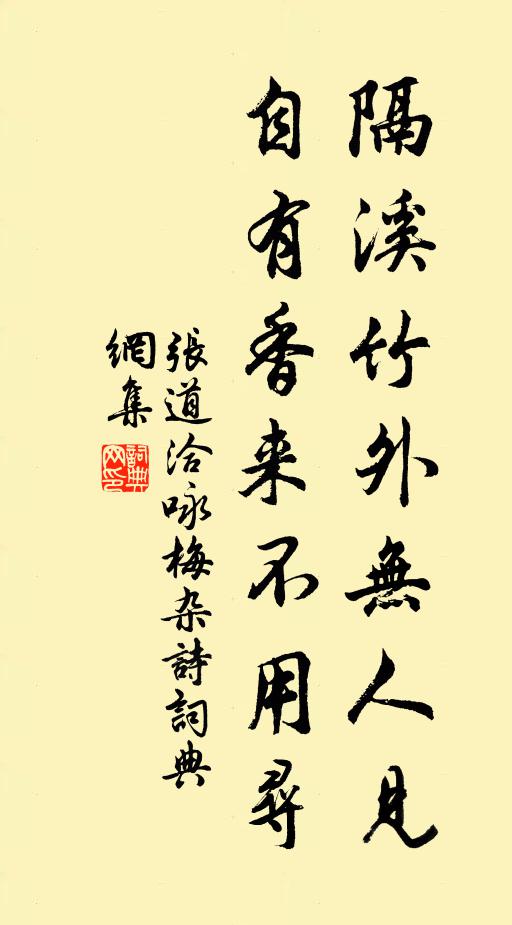 隔溪竹外無人見
自有香来不用尋
張道洽咏梅杂詩詞典
網集
詞典
网印